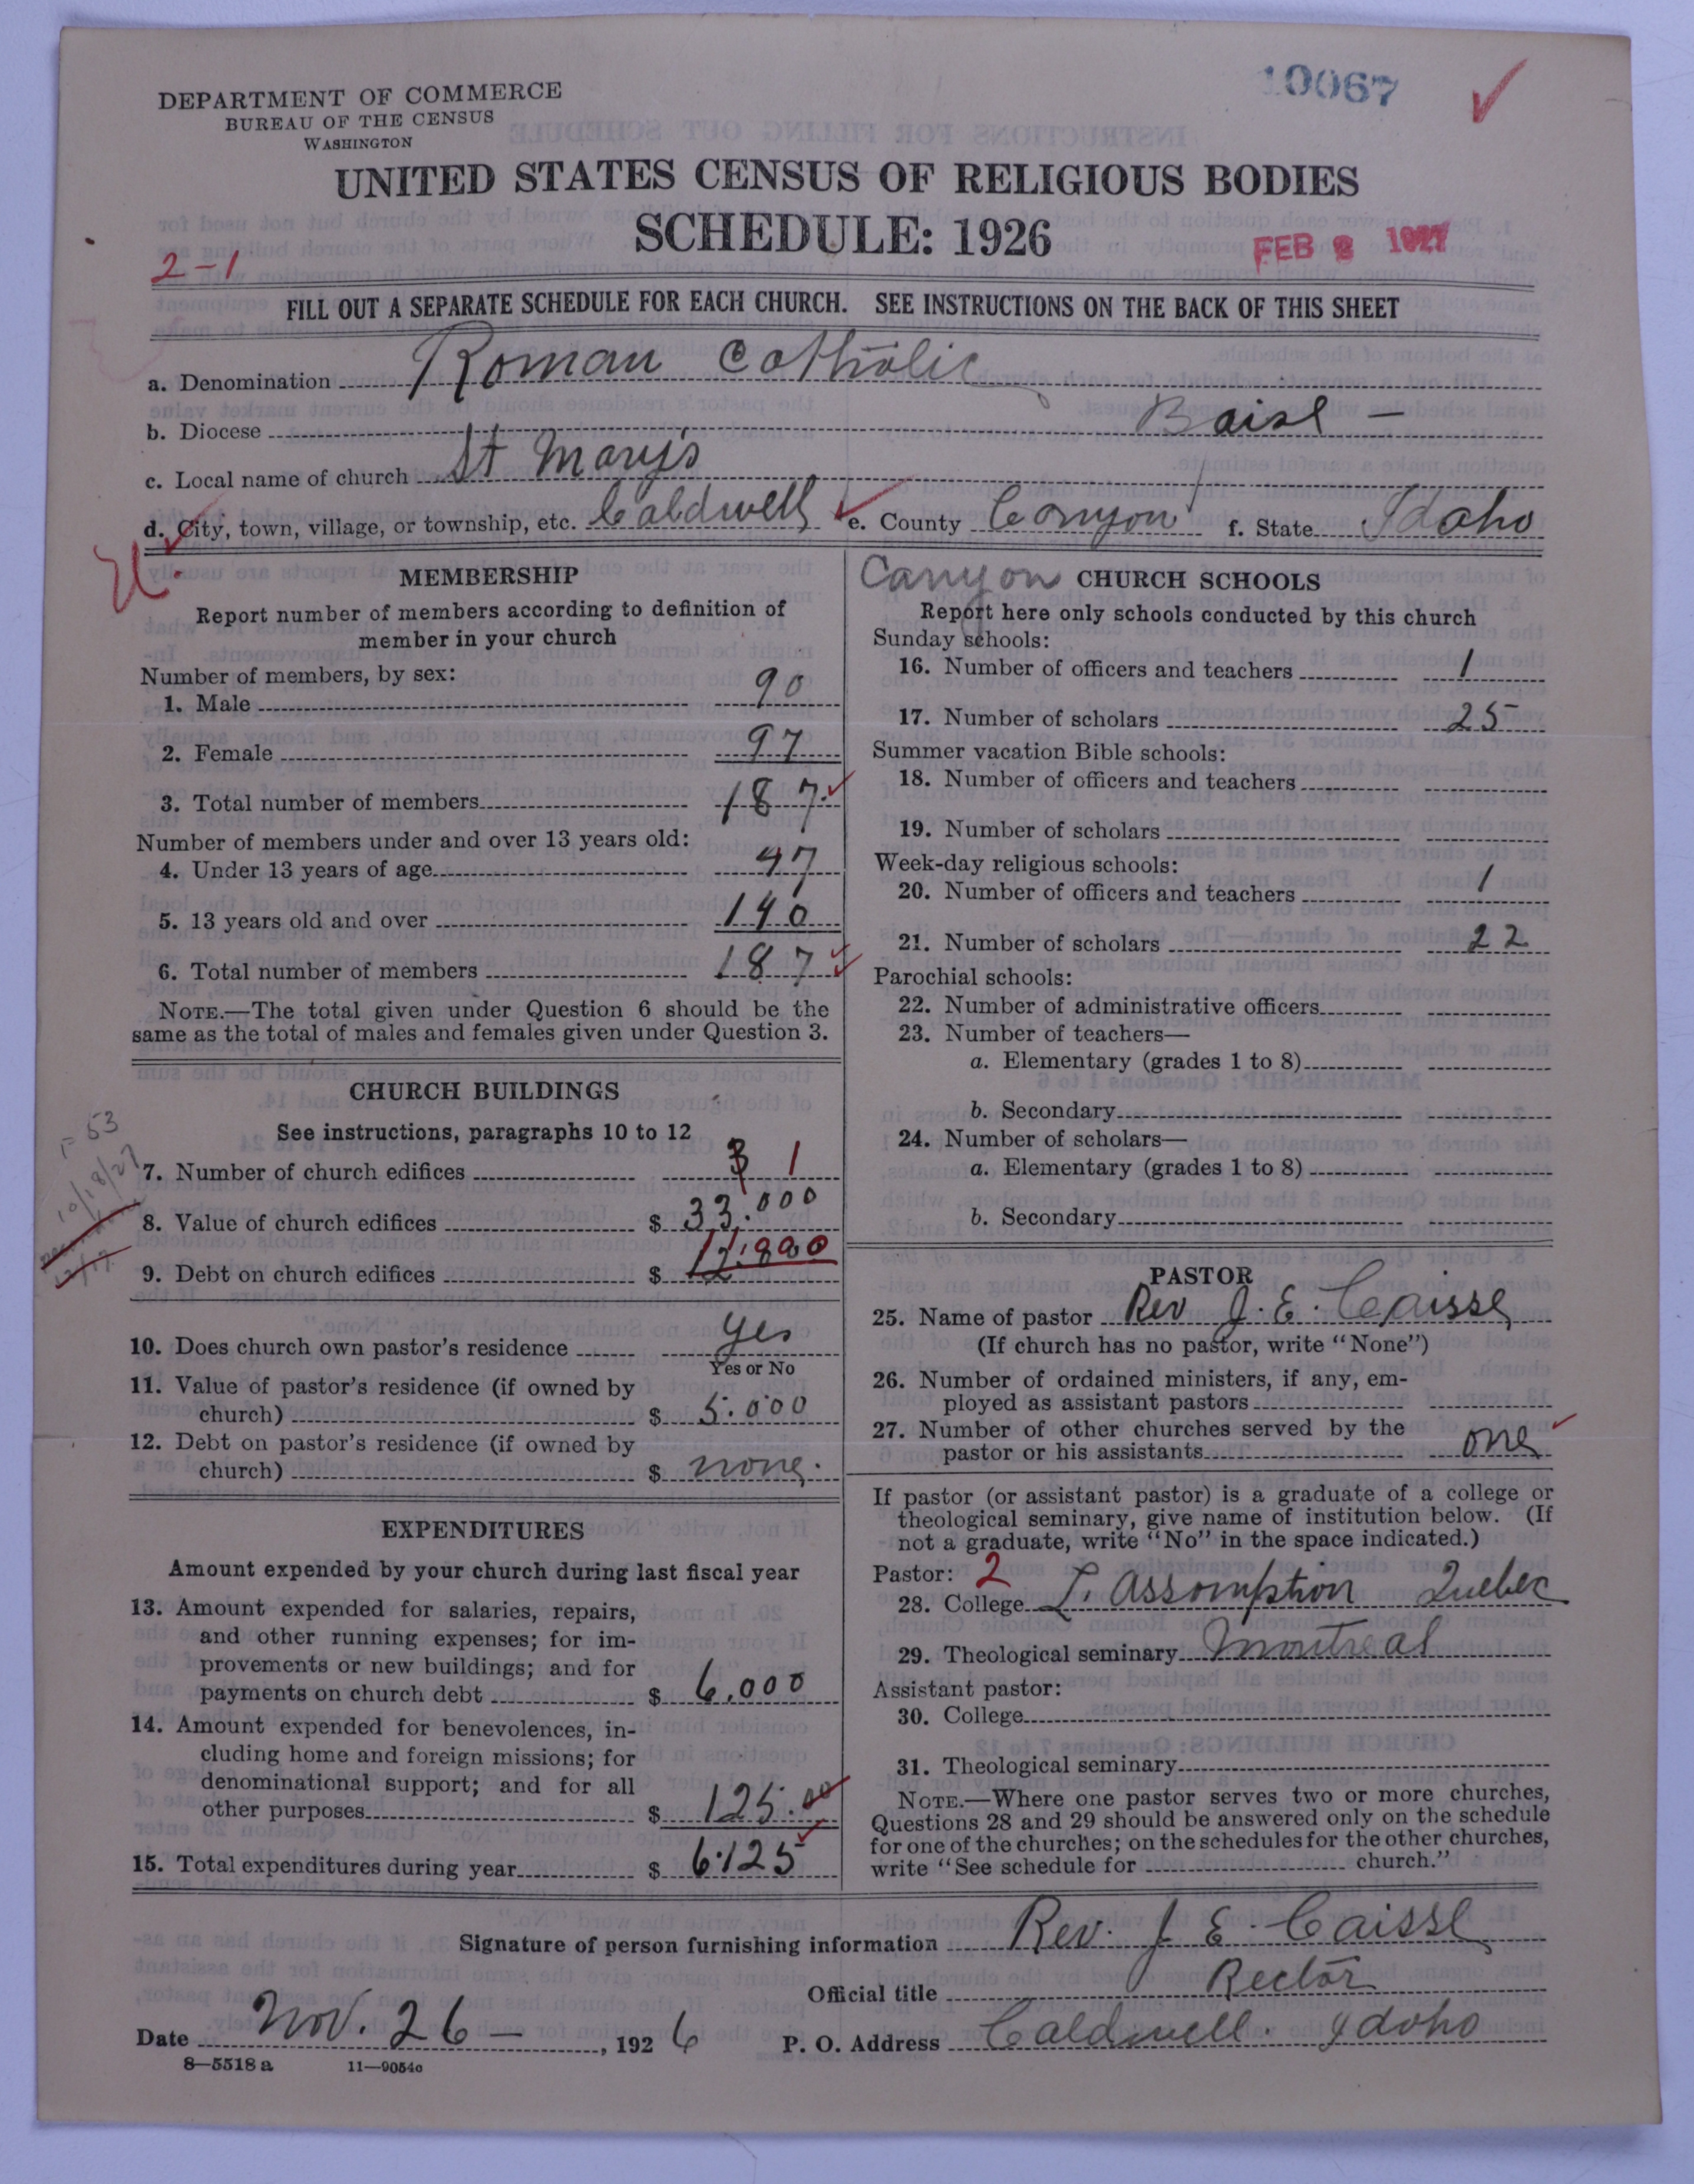 DEPARTMENT OF COMMERCE
BUREAU OF THE CENSUS
WASHINGTON
10067
UNITED STATES CENSUS OF RELIGIOUS BODIES
SCHEDULE: 1926
FEB 2 1927
2-1
FILL OUT A SEPARATE SCHEDULE FOR EACH CHURCH. SEE INSTRUCTIONS ON THE BACK OF THIS SHEET
a. Denomination Roman Catholic
b. Diocese Boise -
c. Local name of church St Mary's
d. City, town, village, or township, etc. Caldwell e. County Conyon f. State Idaho
U.
MEMBERSHIP
Report number of members according to definition of
member in your church
Number of members, by sex:
1. Male 90
2. Female 97
3. Total number of members 187
Number of members under and over 13 years old:
4. Under 13 years of age 47
5. 13 years old and over 140
6. Total number of members 187
NOTE.—The total given under Question 6 should be the
same as the total of males and females given under Question 3.
CHURCH BUILDINGS
See instructions, paragraphs 10 to 12
53
10/18/27
7. Number of church edifices 1
8. Value of church edifices $ 33.000
9. Debt on church edifices $
10. Does church own pastor's residence yes
Yes or No
11. Value of pastor's residence (if owned by
church) $ 5.000
12. Debt on pastor's residence (if owned by
church) $ none.
EXPENDITURES
Amount expended by your church during last fiscal year
13. Amount expended for salaries, repairs,
and other running expenses; for im-
provements or new buildings; and for
payments on church debt $ 6.000
14. Amount expended for benevolences, in-
cluding home and foreign missions; for
denominational support; and for all
other purposes $ 125.00
15. Total expenditures during year $ 6.125
Canyon CHURCH SCHOOLS
Report here only schools conducted by this church
Sunday schools:
16. Number of officers and teachers 1
17. Number of scholars 25
Summer vacation Bible schools:
18. Number of officers and teachers
19. Number of scholars
Week-day religious schools:
20. Number of officers and teachers 1
21. Number of scholars 22
Parochial schools:
22. Number of administrative officers
23. Number of teachers—
a. Elementary (grades 1 to 8)
b. Secondary
24. Number of scholars—
a. Elementary (grades 1 to 8)
b. Secondary
PASTOR
25. Name of pastor Rev J. E. Caisse
(If church has no pastor, write "None")
26. Number of ordained ministers, if any, em-
ployed as assistant pastors
27. Number of other churches served by the
pastor or his assistants one
If pastor (or assistant pastor) is a graduate of a college or
theological seminary, give name of institution below. (If
not a graduate, write "No" in the space indicated.)
Pastor: 2
28. College L. Assomption Quebec
29. Theological seminary Montreal
Assistant pastor:
30. College
31. Theological seminary
NOTE.—Where one pastor serves two or more churches,
Questions 28 and 29 should be answered only on the schedule
for one of the churches; on the schedules for the other churches,
write "See schedule for church."
Signature of person furnishing information Rev. J. E. Caisse
Official title Rector
Date Nov. 26 -, 1926 P. O. Address Caldwell. Idaho
8—5518 a 11—9054c